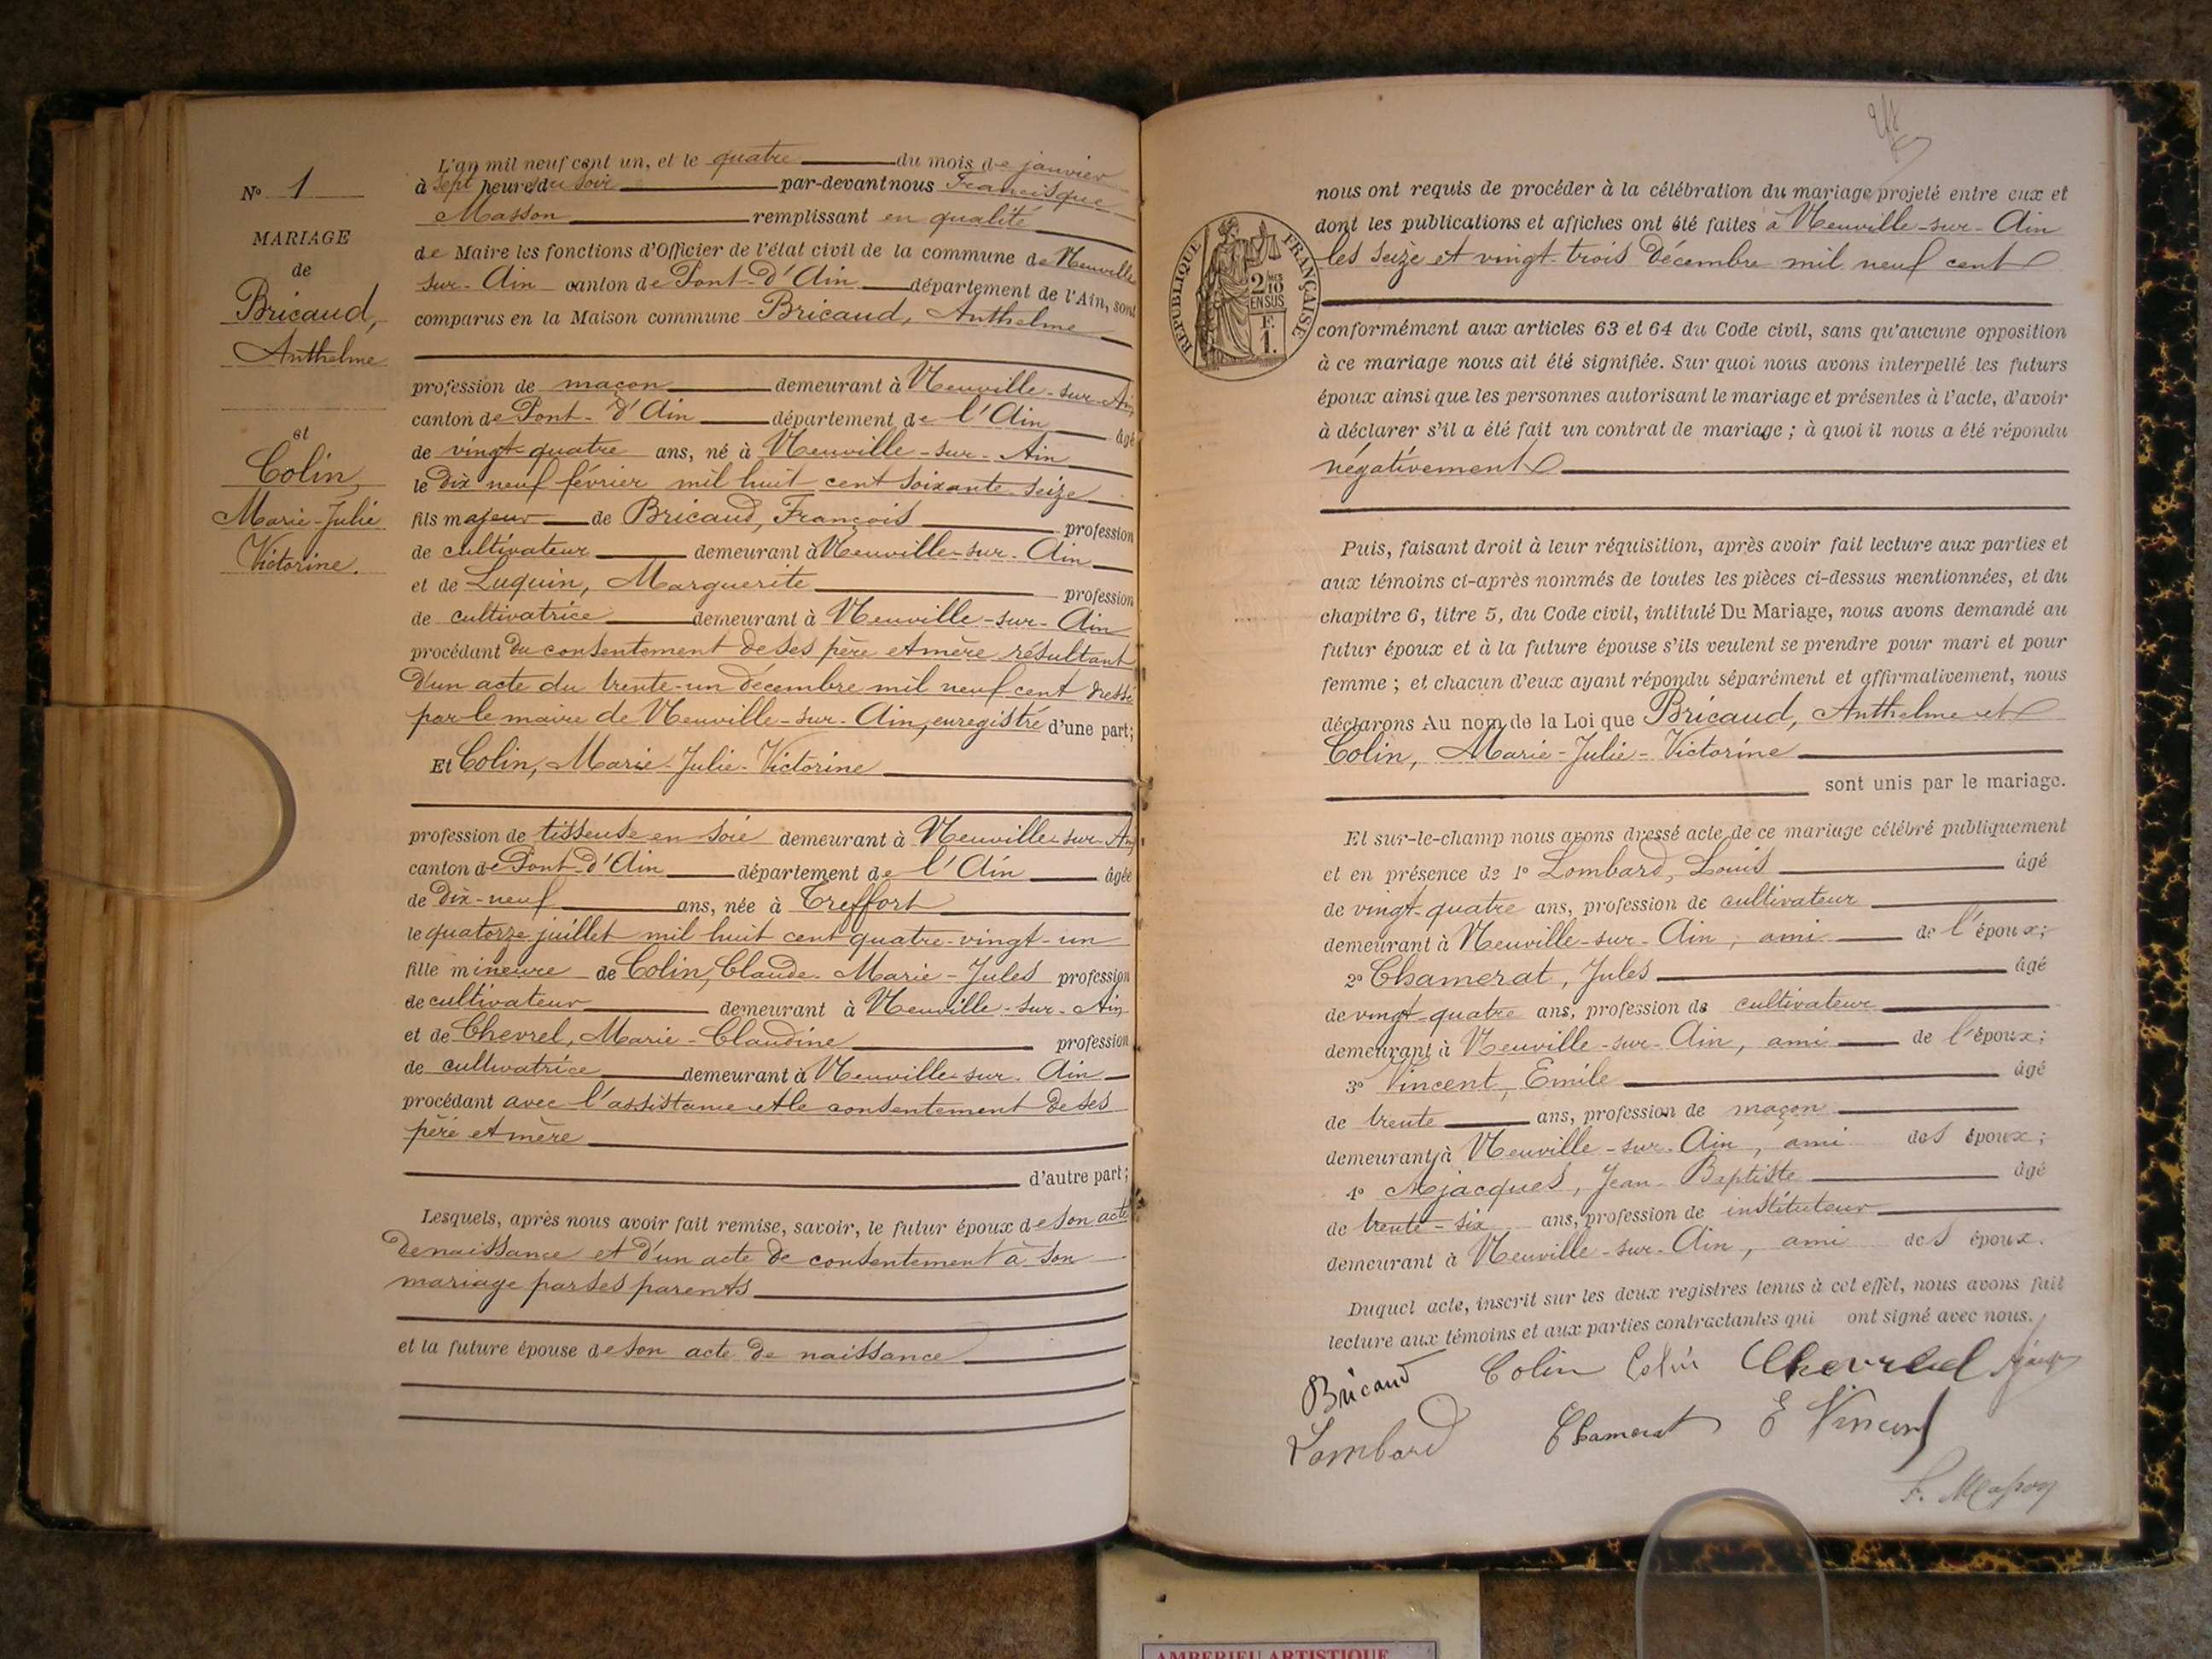 N° 1
MARIAGE
de
Bricaud,
Anthelme
et
Colin,
Marie-Julie
Victorine.
L'an mil neuf cent un, et le quatre du mois de janvier
à sept heures du soir par-devant nous Francisque
Masson remplissant en qualité
de Maire les fonctions d'Officier de l'état civil de la commune de Neuville
sur-Ain canton de Pont-d'Ain département de l'Ain, sont
comparus en la Maison commune Bricaud, Anthelme
profession de maçon demeurant à Neuville-sur-Ain
canton de Pont-d'Ain département de l'Ain âgé
de vingt-quatre ans, né à Neuville-sur-Ain
le dix neuf février mil huit cent soixante-seize
fils majeur de Bricaud, François profession
de cultivateur demeurant à Neuville-sur-Ain
et de Luquin, Marguerite profession
de cultivatrice demeurant à Neuville-sur-Ain
procédant du consentement de ses père et mère résultant
d'un acte du trente-un décembre mil neuf cent dressé
par le maire de Neuville-sur-Ain, enregistré d'une part;
Et Colin, Marie-Julie-Victorine
profession de tisseuse en soie demeurant à Neuville-sur-Ain
canton de Pont-d'Ain département de l'Ain âgée
de dix-neuf ans, née à Treffort
le quatorze juillet mil huit cent quatre-vingt-un
fille mineure de Colin, Claude-Marie-Jules profession
de cultivateur demeurant à Neuville-sur-Ain
et de Chevrel, Marie-Claudine profession
de cultivatrice demeurant à Neuville-sur-Ain
procédant avec l'assistance et le consentement de ses
père et mère
d'autre part;
Lesquels, après nous avoir fait remise, savoir, le futur époux de son acte
de naissance et d'un acte de consentement à son
mariage par ses parents
et la future épouse de son acte de naissance
RÉPUBLIQUE FRANÇAISE
2 MES
2/10
EN SUS
F.
1.
nous ont requis de procéder à la célébration du mariage projeté entre eux et
dont les publications et affiches ont été faites à Neuville-sur-Ain
les seize et vingt-trois décembre mil neuf cent
conformément aux articles 63 et 64 du Code civil, sans qu'aucune opposition
à ce mariage nous ait été signifiée. Sur quoi nous avons interpellé les futurs
époux ainsi que les personnes autorisant le mariage et présentes à l'acte, d'avoir
à déclarer s'il a été fait un contrat de mariage ; à quoi il nous a été répondu
négativement
Puis, faisant droit à leur réquisition, après avoir fait lecture aux parties et
aux témoins ci-après nommés de toutes les pièces ci-dessus mentionnées, et du
chapitre 6, titre 5, du Code civil, intitulé Du Mariage, nous avons demandé au
futur époux et à la future épouse s'ils veulent se prendre pour mari et pour
femme ; et chacun d'eux ayant répondu séparément et affirmativement, nous
déclarons Au nom de la Loi que Bricaud, Anthelme et
Colin, Marie-Julie-Victorine
sont unis par le mariage.
Et sur-le-champ nous avons dressé acte de ce mariage célébré publiquement
et en présence de 1° Lombard, Louis âgé
de vingt-quatre ans, profession de cultivateur
demeurant à Neuville-sur-Ain, ami de l'époux;
2° Chamerat, Jules âgé
de vingt-quatre ans, profession de cultivateur
demeurant à Neuville-sur-Ain, ami de l'époux;
3° Vincent, Emile âgé
de trente ans, profession de maçon
demeurant à Neuville-sur-Ain, ami des époux;
4° Mjacques, Jean-Baptiste âgé
de trente-six ans, profession de instituteur
demeurant à Neuville-sur-Ain, ami des époux.
Duquel acte, inscrit sur les deux registres tenus à cet effet, nous avons fait
lecture aux témoins et aux parties contractantes qui ont signé avec nous.
Bricaud Colin Colin Chevrel
Lombard Chamerat E Vincent
F. Masson
AMBERIEU ARTISTIQUE